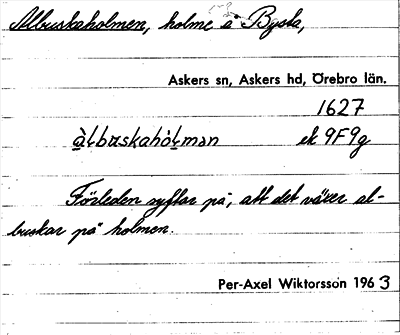 Albuskaholmen, holme å Bysta,
Askers sn, Askers hd, Örebro län.
1627
à̱ɫbuskahóɫmən ek 9F9g
Förleden syftar på, att det växer al-
buskar på holmen.
Per-Axel Wiktorsson 1963